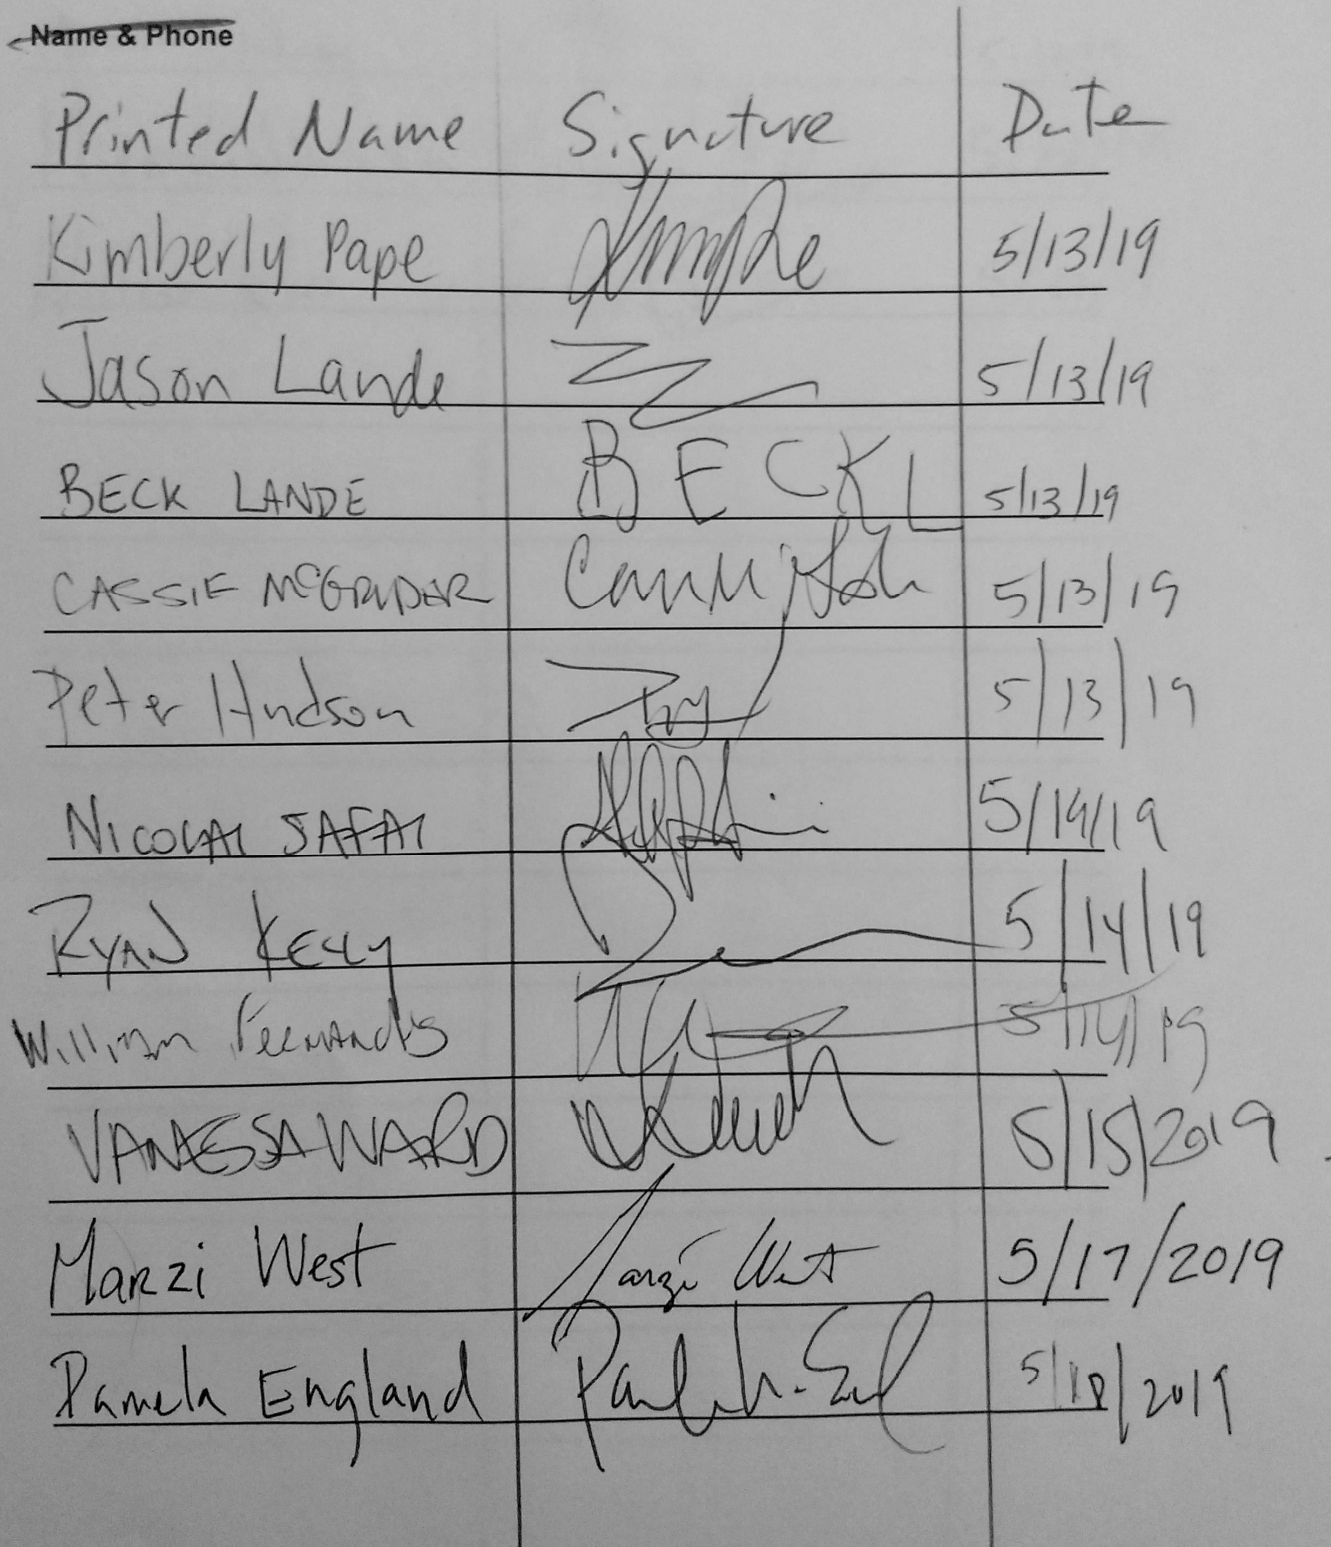 Name & Phone
Printed Name Signature Date
Kimberly Pape 5/13/19
Jason Lande 5/13/19
BECK LANDE BECK L 5/13/19
CASSIE McGRUDER 5/13/19
Peter Hudson 5/13/19
NICOLAI SAFAI 5/14/19
RYAN KELLY 5/14/19
William Fernandes 5/14/19
VANESSA WARD 5/15/2019
Marzi West Marzi West 5/17/2019
Pamela England 5/18/2019